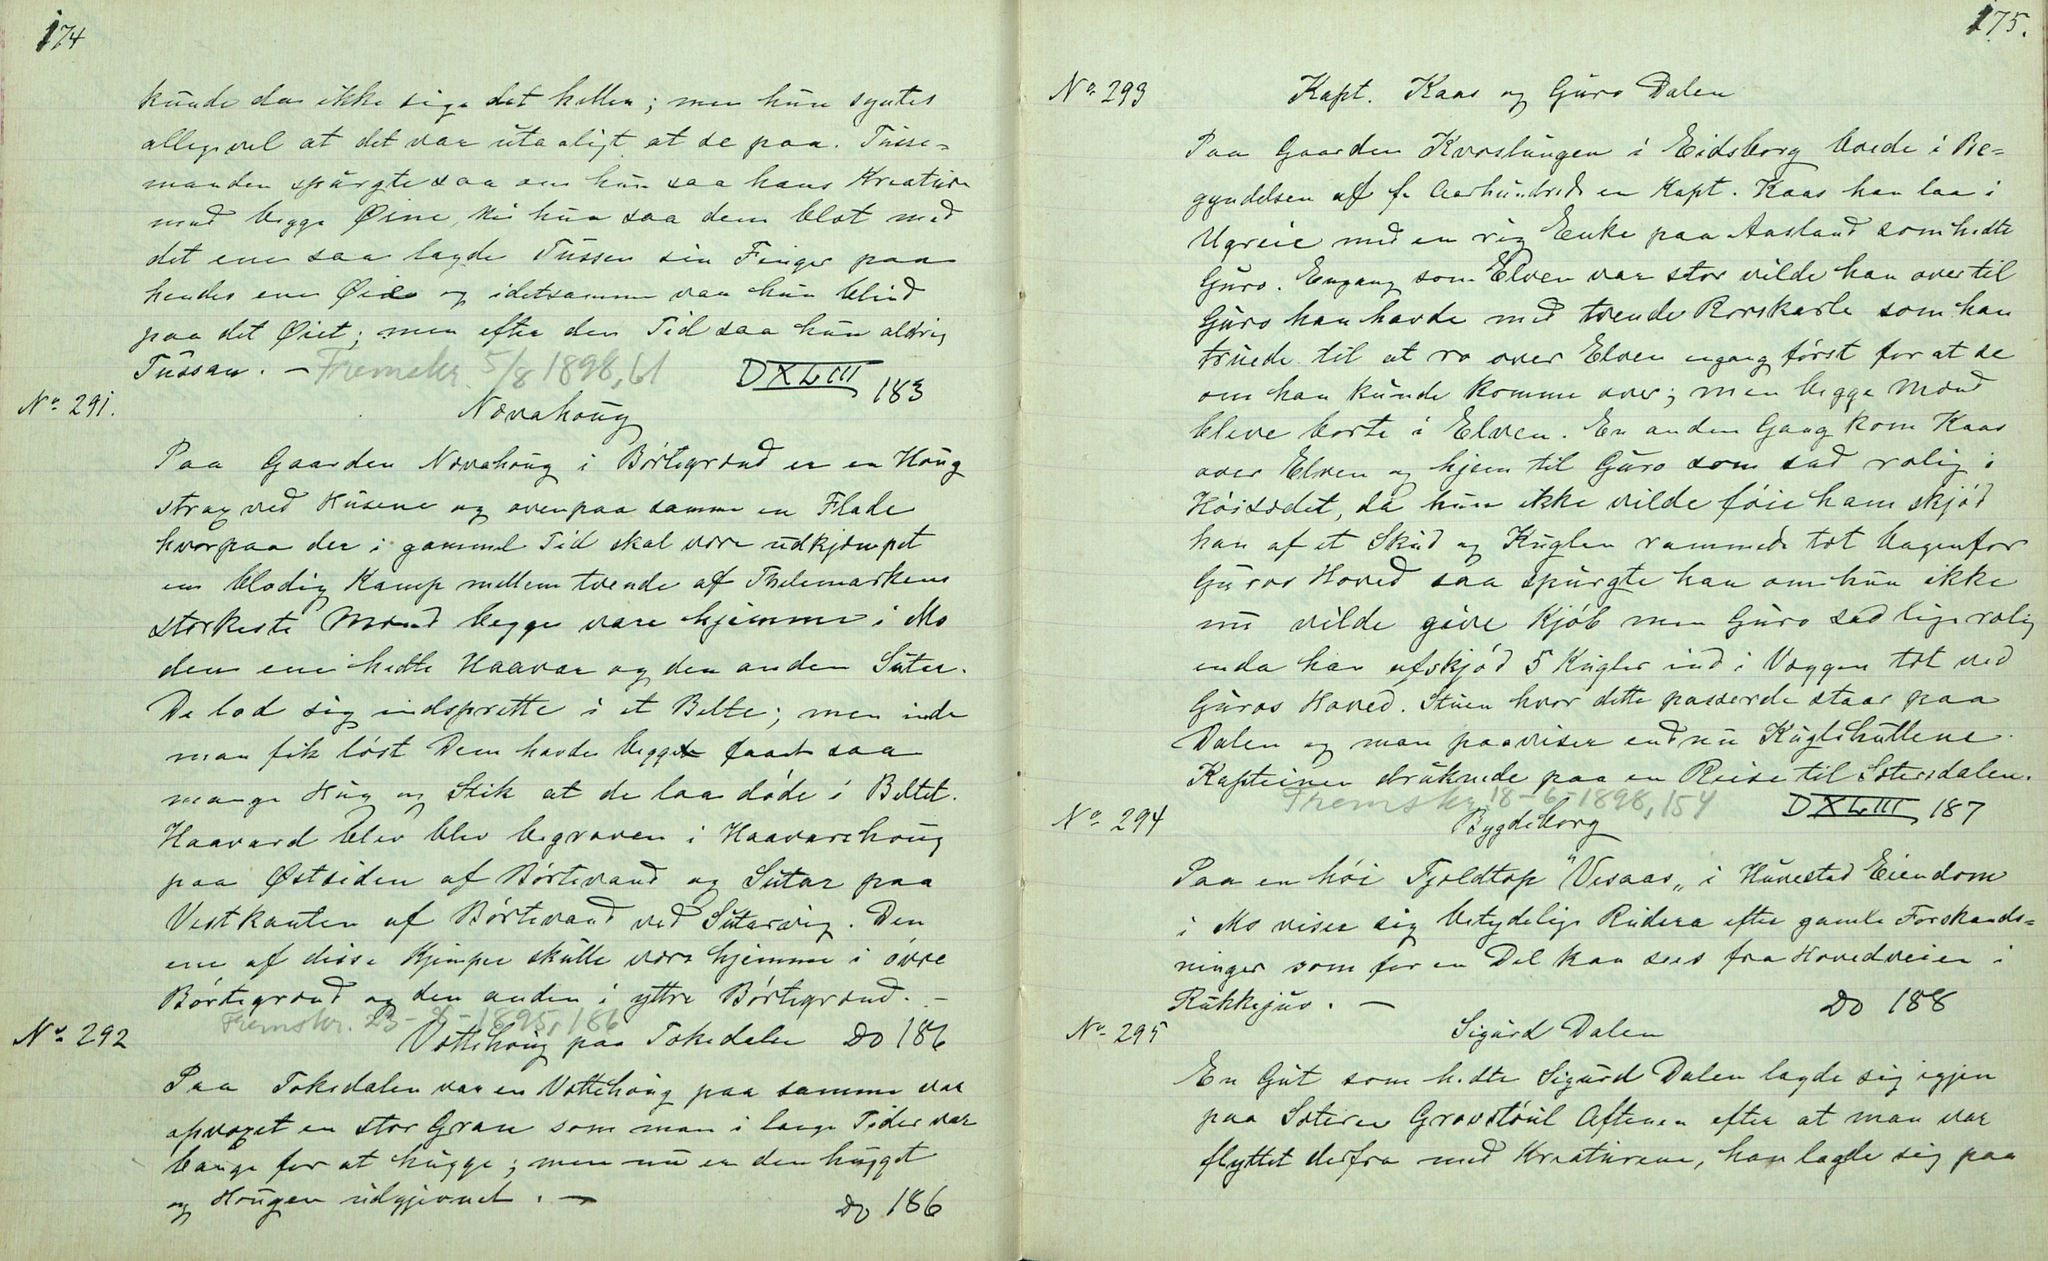 174
kunde da ikke sige det heller; men hun syntes
alligevel at det var utaaligt at se paa. Tusse-
manden spurgte saa om hun saa hans Kreature
med begge Øine, nei hun saa dem blot med
det ene saa lagde Tussen sin Finger paa
hendes ene Øie og idetsamme var hun blind
paa det Øiet; men efter den Tid saa hun aldrig
Tussar. – Fremskr. 5/8 1898, 61 DXLIII 183
No 291. Nævahoug
Paa Gaarden Nævahoug i Børtegrænd er en Houg
strax ved Husene og ovenpaa samme en Flade
hvorpaa der i gammel Tid skal være udkjæmpet
en blodig Kamp mellem tvende af Thelemarkens
stærkeste Mænd begge vare hjemme i Mo
den ene hedte Haavar og den anden Sutar.
De lod sig indsprette i et Belte; men inde
man fik løst Dem havde begge faaet saa
mange Hug og Stik at de laa døde i Beltet.
Haavard blev blev begraven i Haavarshoug
paa Østsiden af Børtevand og Sutar paa
Vestkanten af Børtevand ved Sutarvig. Den
ene af disse Kjemper skulle være hjemme i øvre
Børtegrænd og den anden i yttre Børtegrænd. –
Fremskr. 23-8-1895, 186
No 292 Vættehoug paa Tokedalen Do 186
Paa Tokedalen var en Vættehoug paa samme var
opvoxet en stor Gran som man i lange Tider var
bange for at hugge; men nu er den hugget
og Hougen udgjevnet. – Do 186
175.
No 293 Kapt. Kaas og Guro Dalen
Paa Gaarden Kvæstungen i Eidsborg boede i Be-
gyndelsen af f. Aarhundrede en Kapt. Kaas han laa i
Ugreie med en rig Enke paa Aasland som hedte
Guro. Engang som Elven var stor vilde han over til
Guro han havde med tvende Rorskarle som han
truede til at ro over Elven engang först for at se
om han kunde komme over; men begge Mænd
bleve borte i Elven. En anden Gang kom Kaas
over Elven og hjem til Guro som sad rolig i
Höisædet, da hun ikke vilde föie ham skjöd
han af et Skud og Kuglen rammede tæt bagenfor
Guros Hoved saa spurgte han om hun ikke
nu vilde give Kjöb men Guro sad lige rolig
enda han afskjöd 5 Kugler ind i Væggen tæt ved
Guros Hoved. Stuen hvor dette passerde staar paa
Dalen og man paaviser endnu Kuglehullene.
Kapteinen druknede paa en Reise til Sætersdalen.
Fremskr. 18-6-1898, 154 DXLIII 187
No 294 Bygdeborg
Paa en høi Fjeldtop "Vesaas" i Huvestad Eiendom
i Mo viser sig betydelige Rudera efter gamle Forskands-
ninger som for en Del kan sees fra Hovedveien i
Rukkejuv. – Do 188
No 295 Sigurd Dalen
En Gut som hedte Sigurd Dalen lagde sig igjen
paa Sæteren Gravstöul Aftenen efter at man var
flyttet derfra med Kreaturene, han lagde sig paa